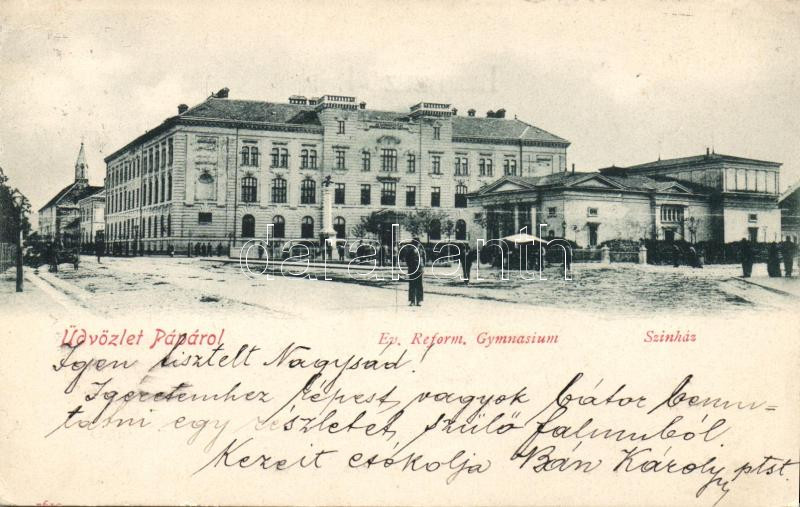 darabanth
Üdvözlet Pápárol Ev. Reform. Gymnasium Szinház
Igen tisztelt Nagysád!
Igeretemhez képest, vagyok bátor bemu-
tatni egy részletet, szülő falumból
Kezeit csókolja Bán Károly ptst.